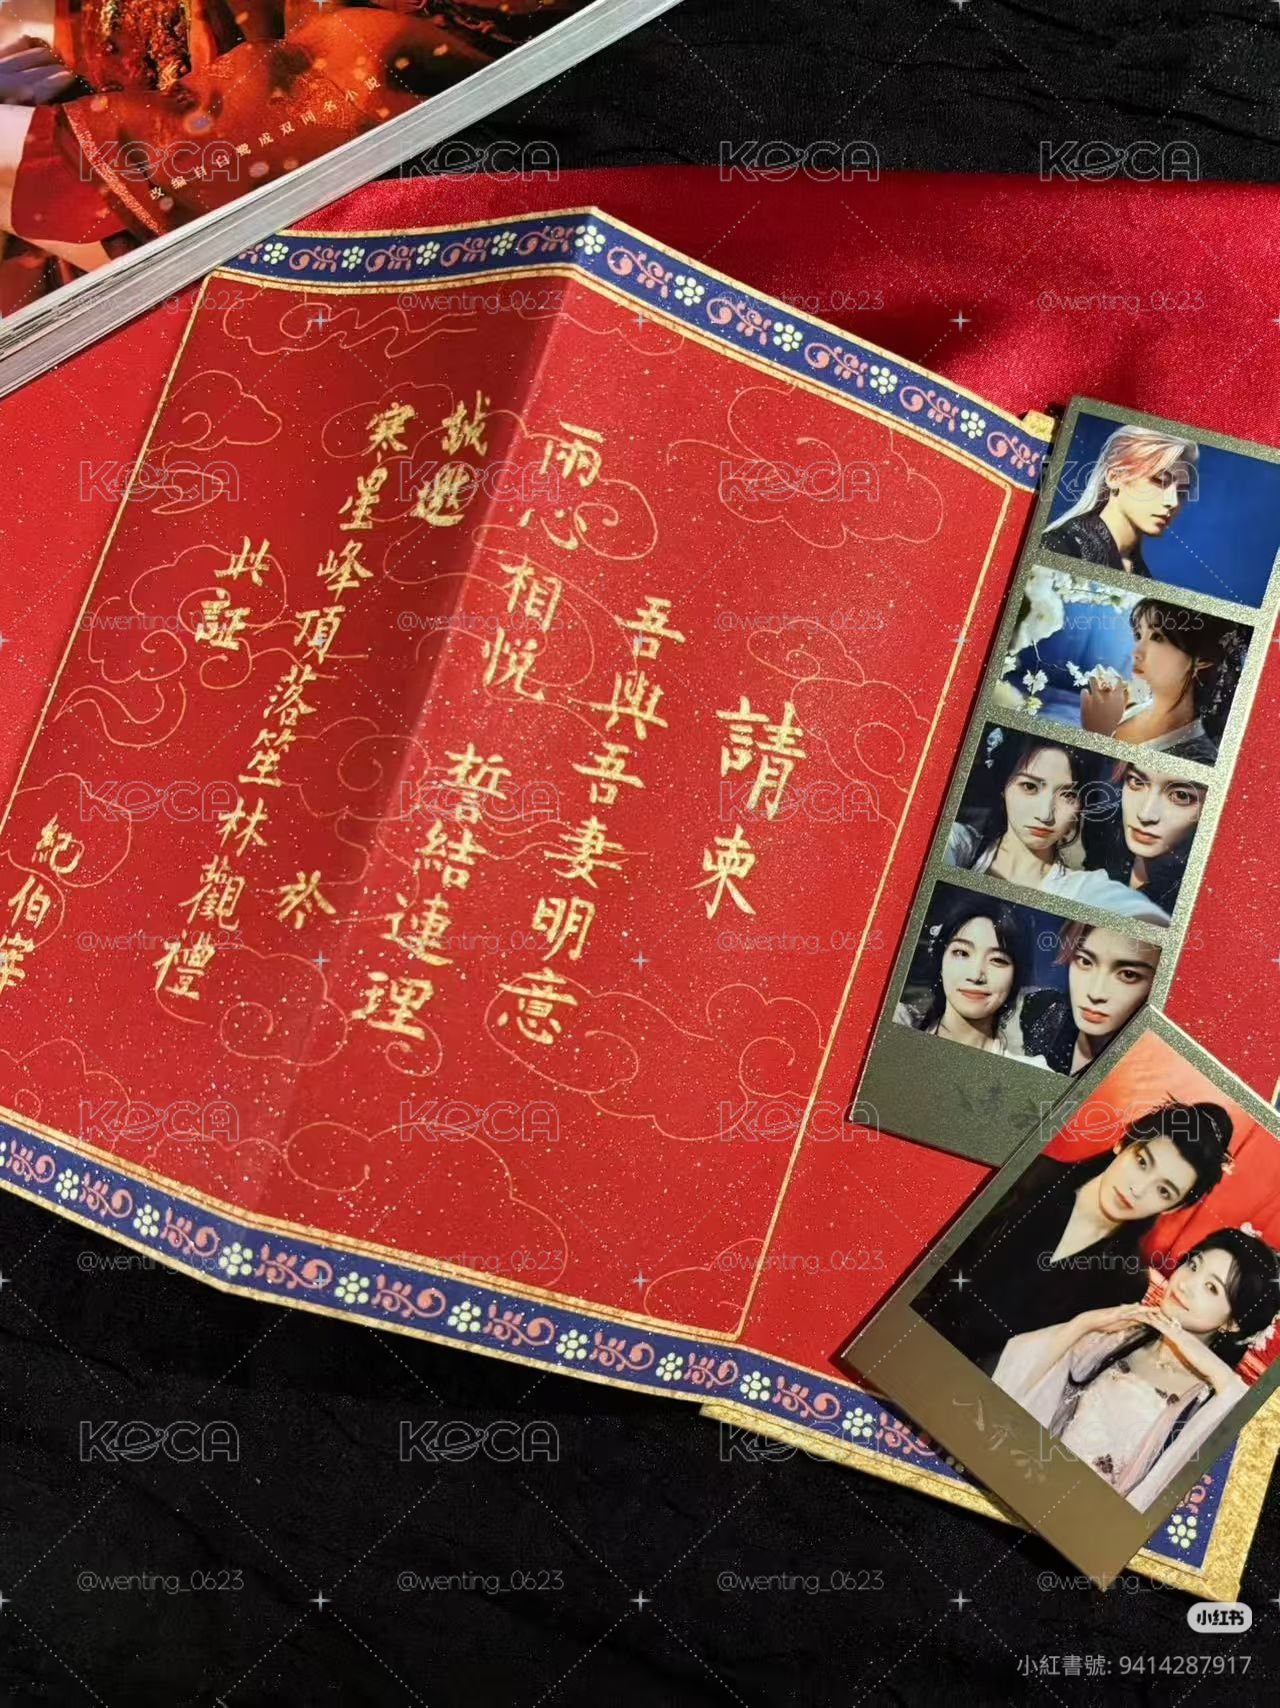 改编自白鹭成双同名小说
請柬
吾與吾妻明意
兩心相悅 誓結連理
誠邀 於
寒星峰頂落笙林觀禮
此証
紀伯宰
KOCA
@wenting_0623
小红书
小紅書號: 9414287917